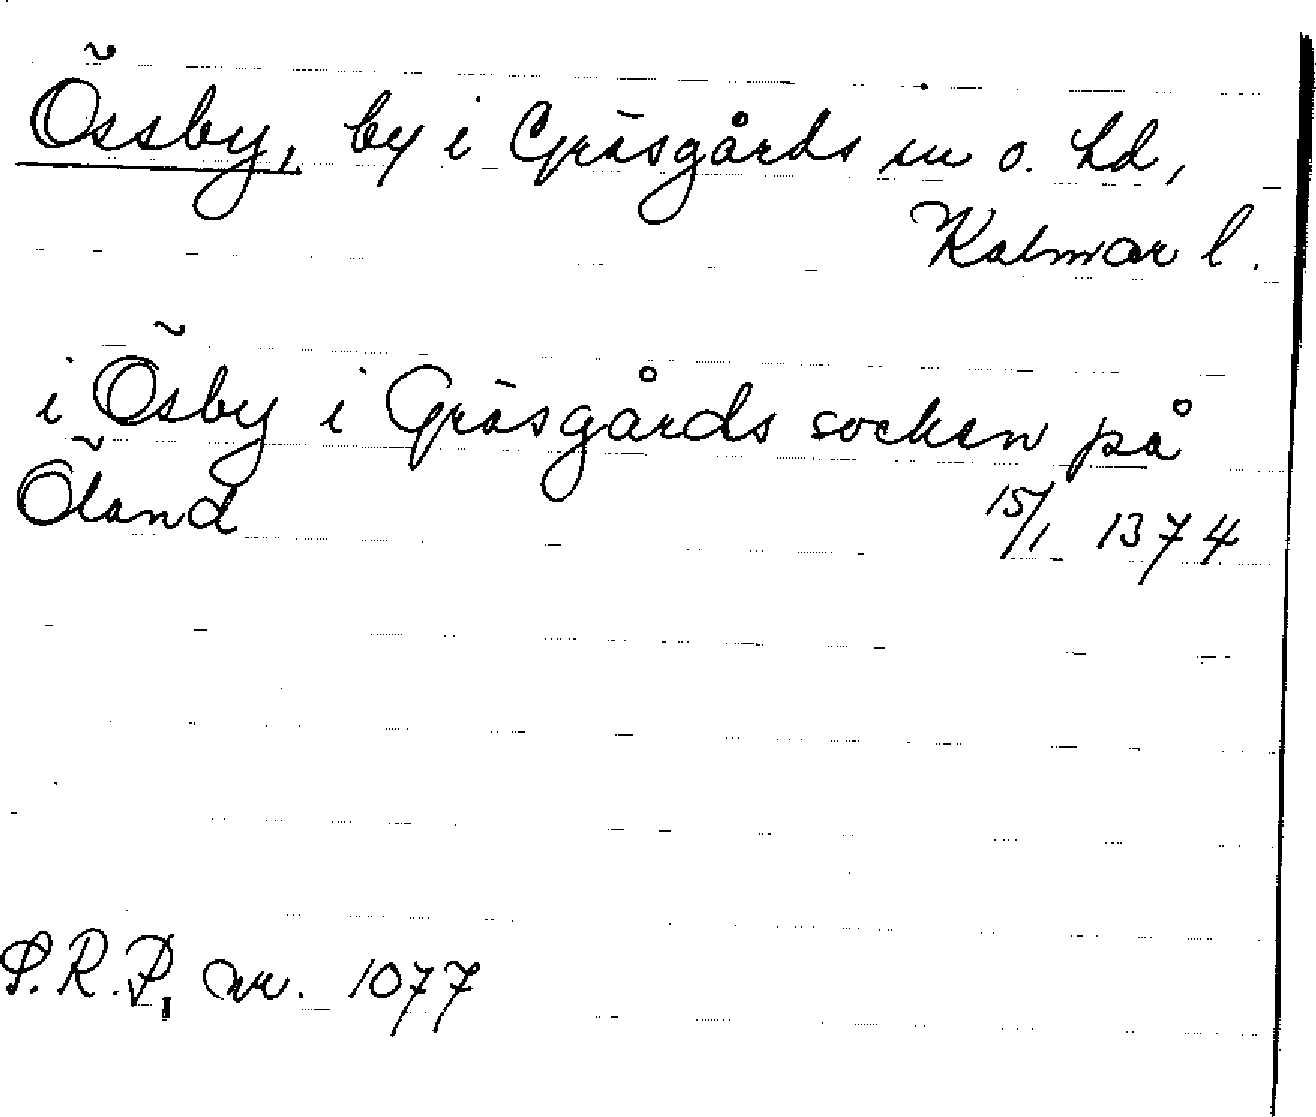 Össby, by i Gräsgårds sn o. hd,
Kalmar l.
i Ösby i Gräsgårds socken på
Öland 15/1 1374
S.R.P. nr. 1077